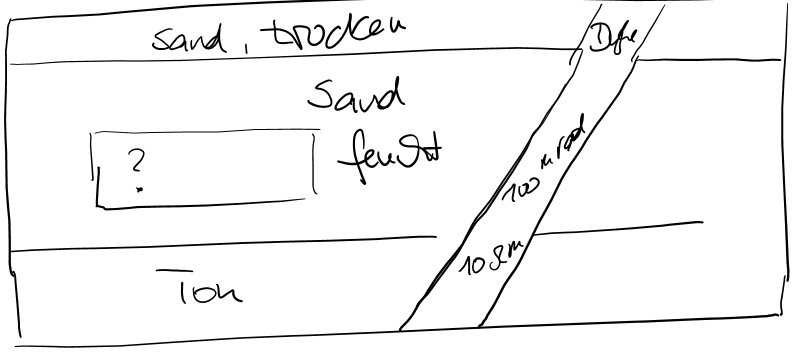 Sand, trocken
Sand
feucht
?
100 mrad
10 Ωm
Ton